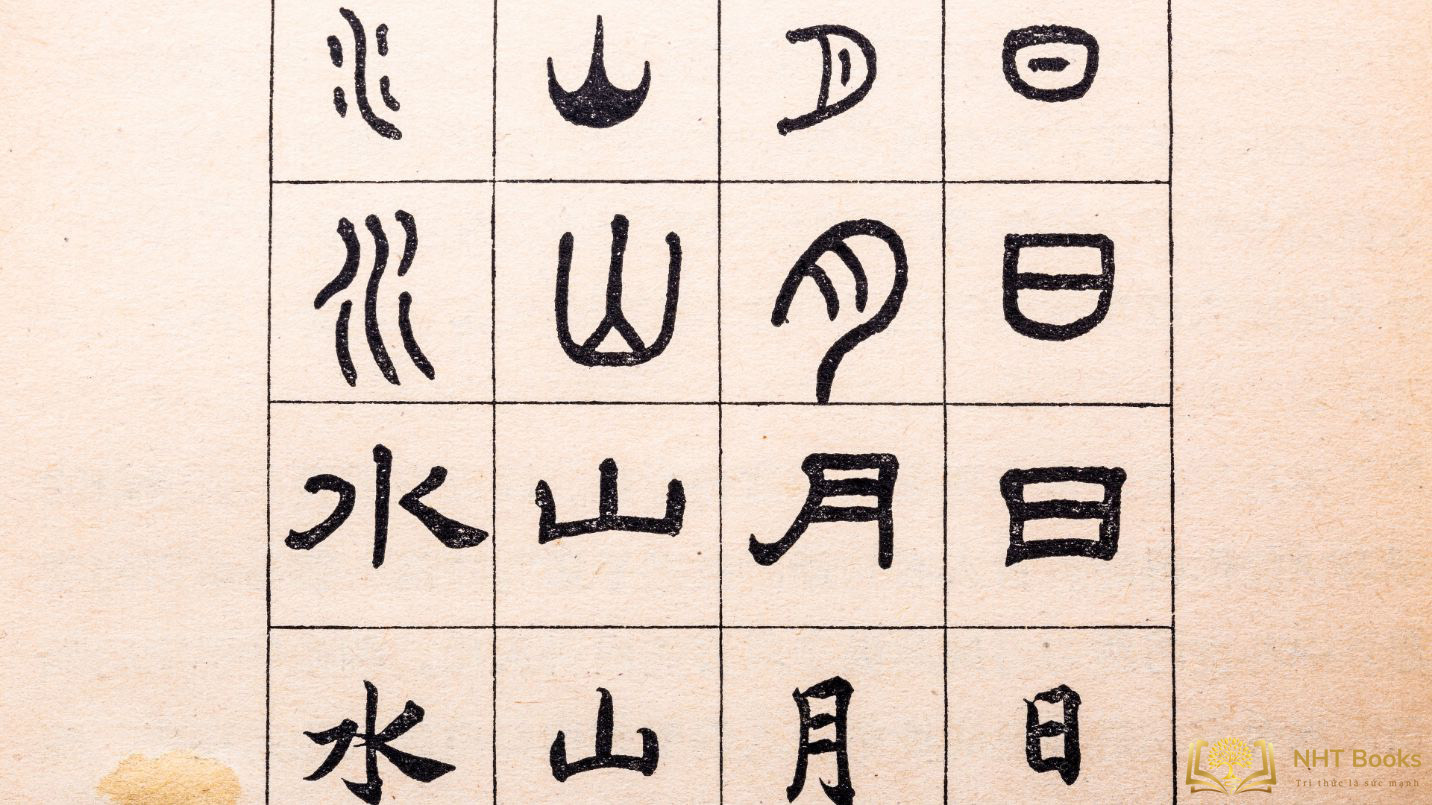 水 山 月 日
水 山 月 日
水 山 月 日
水 山 月 日
NHT Books
Tri thức là sức mạnh